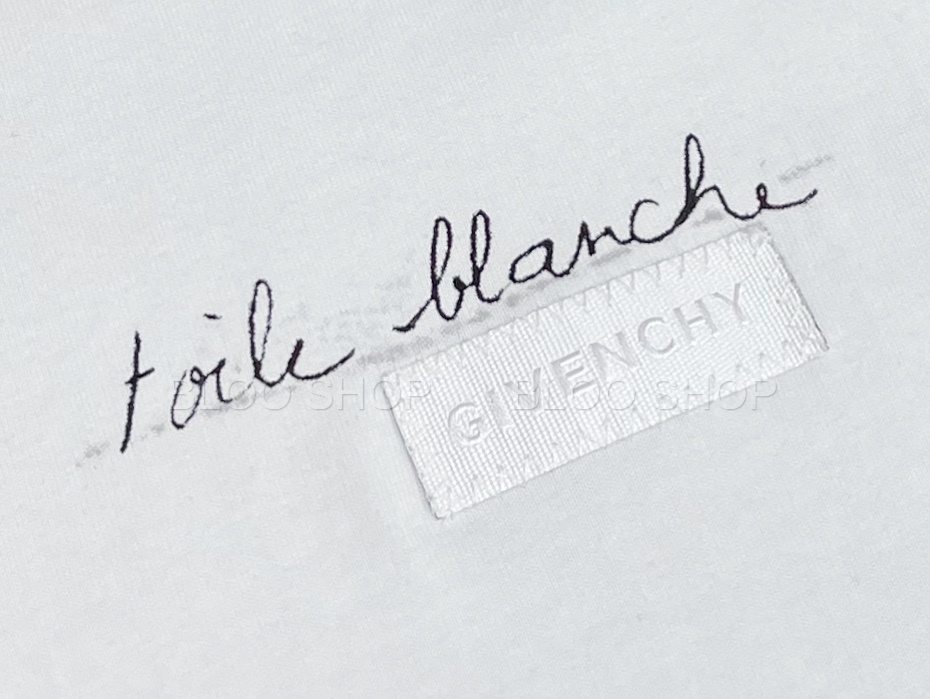 toile blanche
GIVENCHY
BLOO SHOP BLOO SHOP